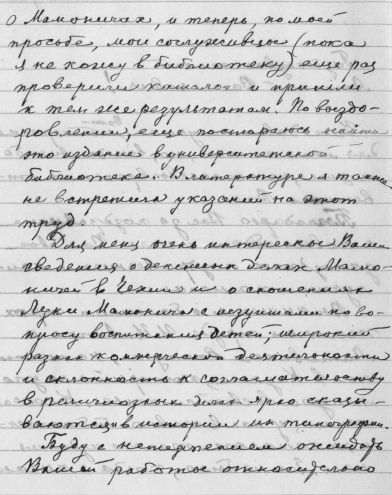 о Мамоничах, и теперь, по моей
просьбе, мои сослуживцы (пока
я не хожу в библиотеку) еще раз
проверили каталог и пришли
к тем же результатам. По выздо-
ровлении, еще постараюсь найти
это издание в университетской
библиотеке. В литературе я также
не встретила указаний на этот
труд
Для меня очень интересны Ваши
сведения о денежных делах Мамо-
ничей в Чехии и о сношениях
Луки Мамонича с иезуитами по во-
просу воспитания детей; широкий
размах коммерческой деятельности
и склонность к соглашательству
в религиозных делах ярко сказы-
ваются в истории их типографии.
Буду с нетерпением ожидать
Вашей работы относительно